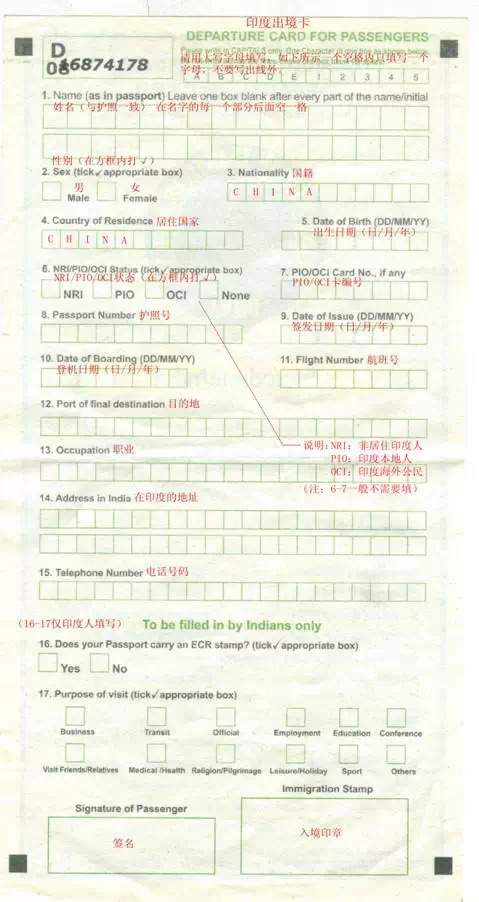 印度出境卡
DEPARTURE CARD FOR PASSENGERS
D
08 16874178
Please write in CAPITALS only. One Character in one box as shown below.
请用大写字母填写，如下所示一个空格内只填写一个
字母，不要写出线外。
A B C D E 1 2 3 4 5
1. Name (as in passport) Leave one box blank after every part of the name/initial
姓名（与护照一致） 在名字的每一个部分后面空一格
性别（在方框内打√）
2. Sex (tick✓appropriate box) 3. Nationality 国籍
男 女
Male Female
C H I N A
4. Country of Residence 居住国家 5. Date of Birth (DD/MM/YY)
出生日期（日/月/年）
C H I N A
6. NRI/PIO/OCI Status (tick✓appropriate box) 7. PIO/OCi Card No., if any
NRI/PIO/OCI状态（在方框内打√） PIO/OCI卡编号
NRI PIO OCI None
8. Passport Number 护照号 9. Date of Issue (DD/MM/YY)
签发日期（日/月/年）
10. Date of Boarding (DD/MM/YY) 11. Flight Number 航班号
登机日期（日/月/年）
12. Port of final destination 目的地
说明：NRI：非居住印度人
13. Occupation 职业
PIO：印度本地人
OCI：印度海外公民
14. Address in India 在印度的地址
（注：6-7一般不需要填）
15. Telephone Number 电话号码
（16-17仅印度人填写） To be filled in by Indians only
16. Does your Passport carry an ECR stamp? (tick✓appropriate box)
Yes No
17. Purpose of visit (tick✓appropriate box)
Business Transit Official Employment Education Conference
Visit Friends/Relatives Medical /Health Religion/Pilgrimage Leisure/Holiday Sport Others
Immigration Stamp
Signature of Passenger
签名
入境印章